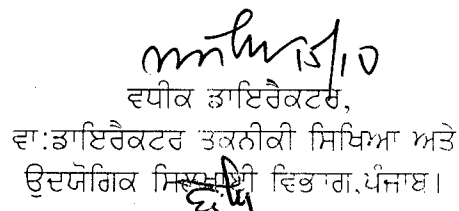 15/10
ਵਧੀਕ ਡਾਇਰੈਕਟਰ,
ਵਾ:ਡਾਇਰੈਕਟਰ ਤਕਨੀਕੀ ਸਿਖਿਆ ਅਤੇ
ਉਦਯੋਗਿਕ ਵਿਭਾਗ,ਪੰਜਾਬ।